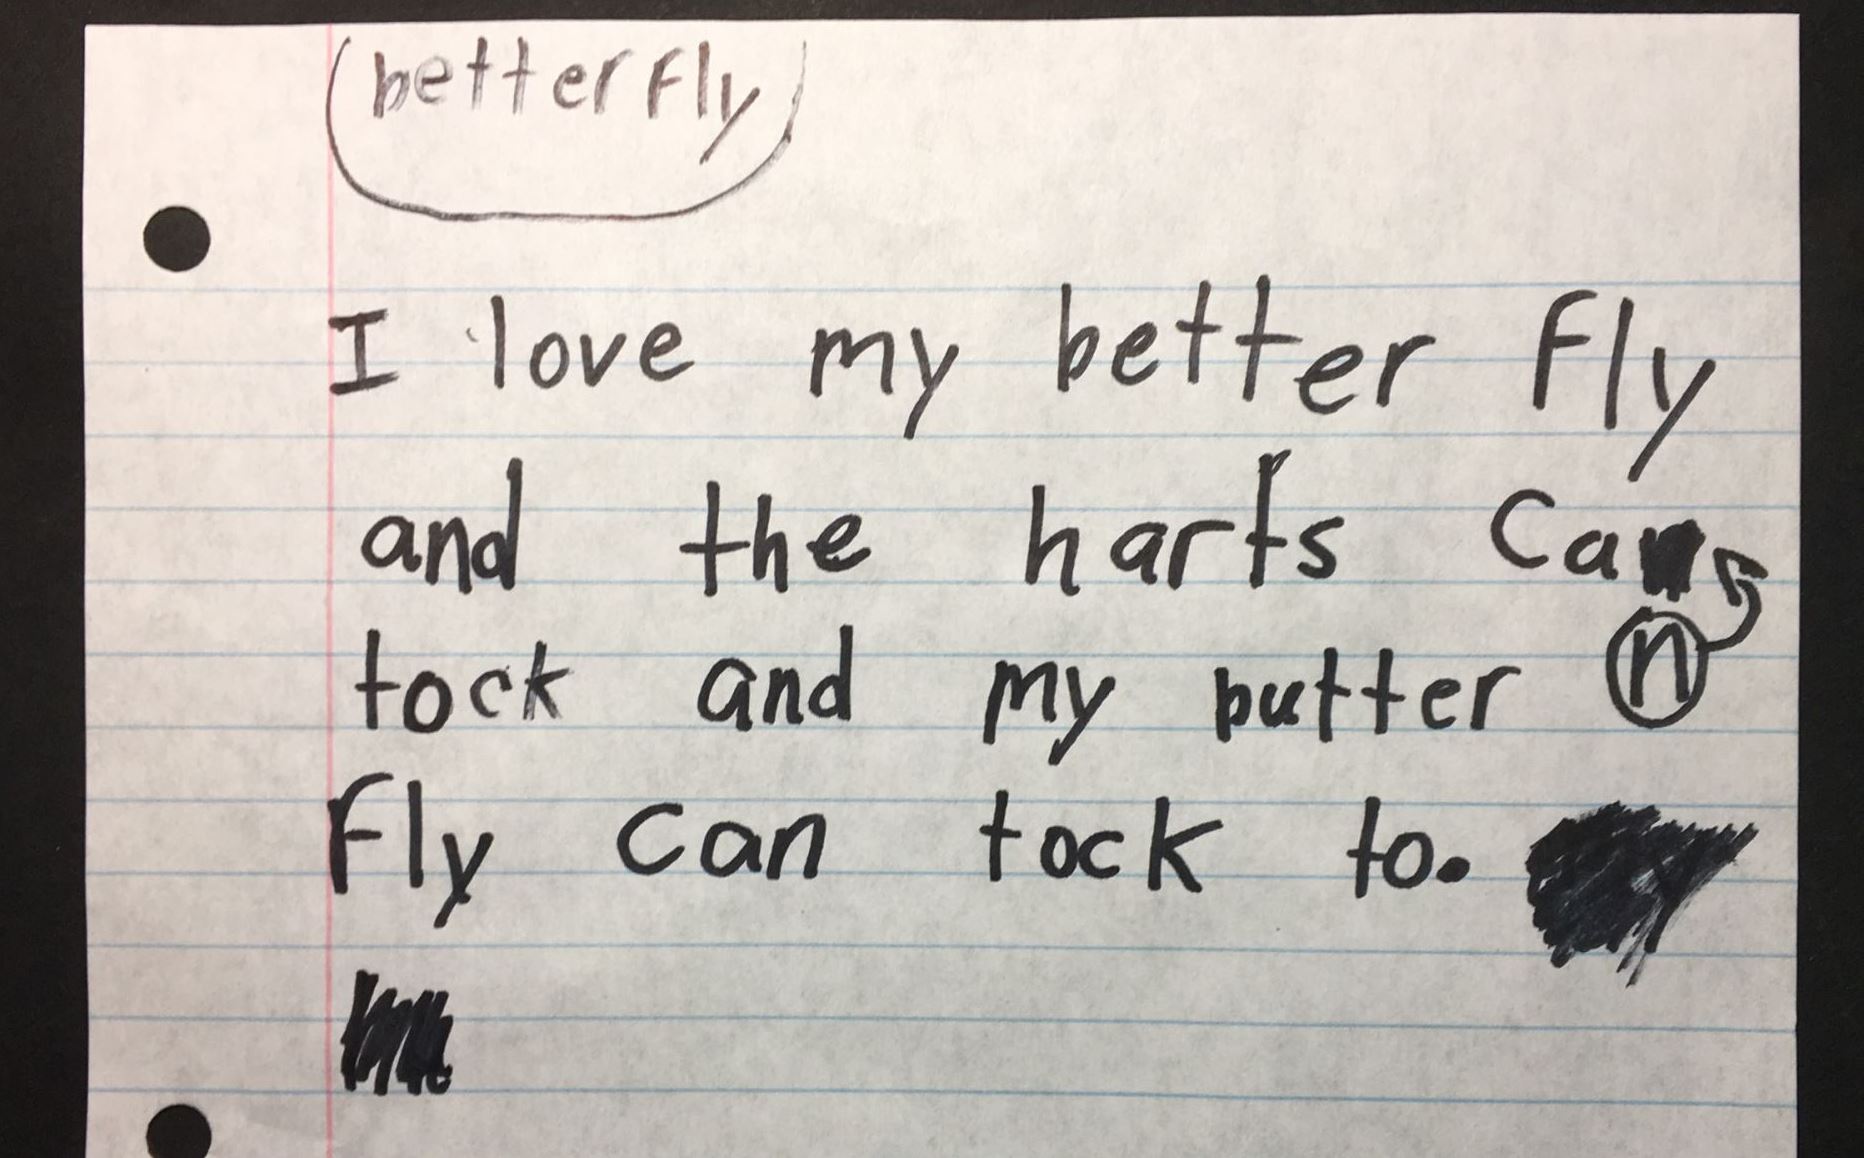 better fly
I love my better fly
and the harts can
tock and my butter n
fly can tock to.